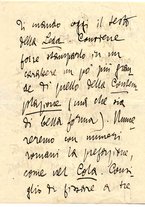 Ti mando oggi il testo
della Leda. Conviene
forse stamparlo in un
carattere un po' più gran
de di quello della Contem
plazione (ma che sia
di bella forma). Nume
reremo con numeri
romani la prefazione,
come nel Cola. Consi
glio di tirare a tre